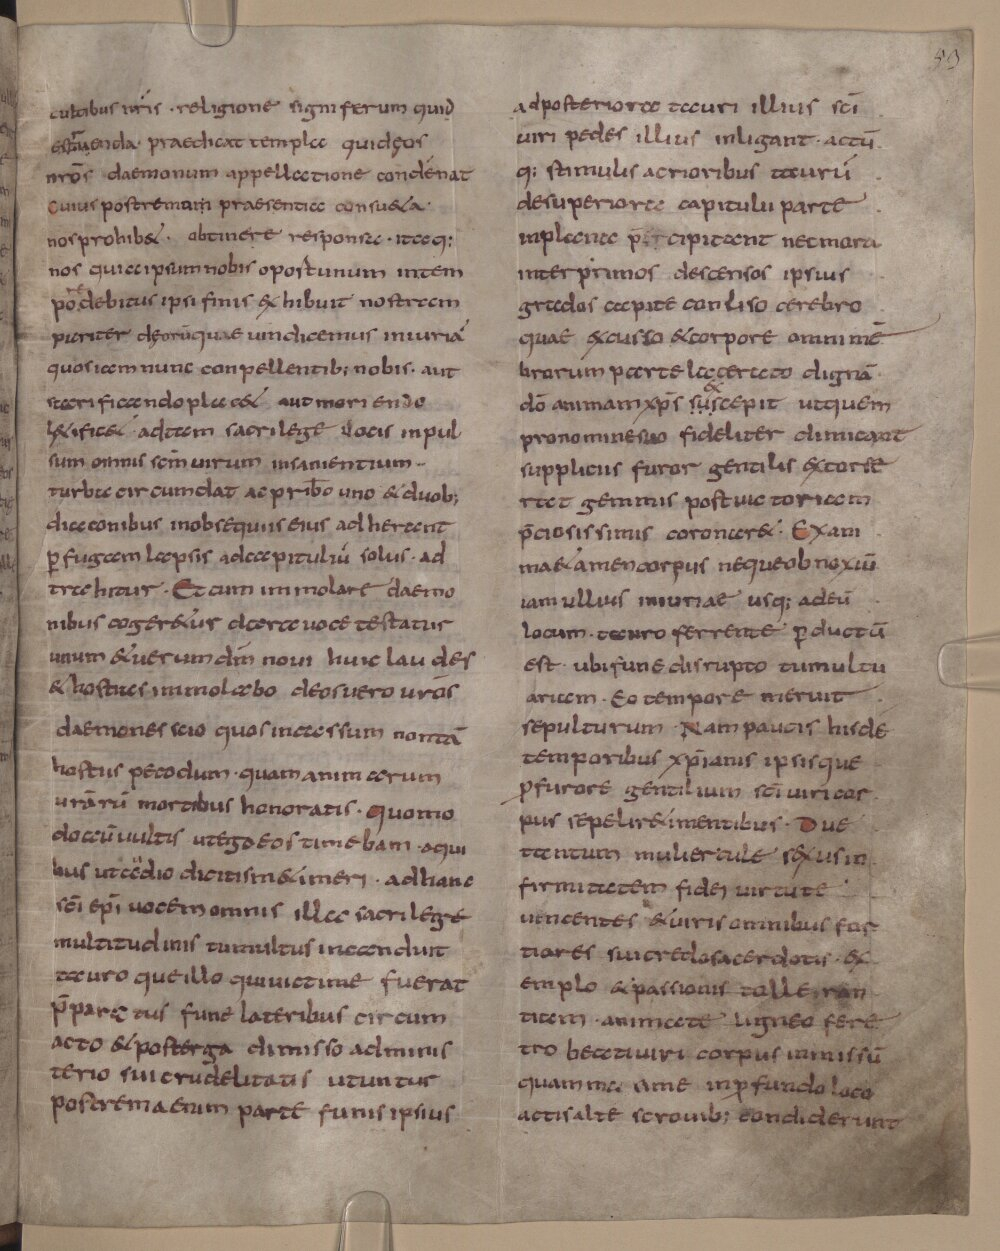 59
cultibus nr̄is · religione signiferum quid
extruenda · praedicat templa quid eos
nr̄os daemonum appellatione condēnat
Cuius postremum praesentia consueta ·
nos prohibet · obtinere responsa · itaq;
nos quia ipsum nobis oportunum in tem
pore debitus ipsi finis exhibuit nostram
pariter deorūquae vindicemus iniuriā
quos iam nunc conpellentib; nobis · aut
sacrificando placet aut moriendo
letificet · ad tam sacrilege vocis inpul
sum omnis sc̄m virum insanientium ·
turba circumdat ac prb̄o uno & duob;
diaconibus in obsequiis eius adherent
p̄ fugam lapsis ad capitoliū solus · ad
trahitur · Et cum immolare daemo
nibus cogeretur clara voce testatus
unum & verum dm̄ novi huic laudes
& hostias immolabo deos vero vr̄os
daemones scio quos incassum non tā
hostiis pecodum · quam animarum
vr̄arū mortibus honoratis · Quomo
do aū vultis ut ego eos timebam · a qui
bus ut audio dicitis me timeri · ad hanc
sc̄i ep̄i vocem omnis illa sacrilege
multitudinis tumultus incenduit
tauro que illo qui victime fuerat
p̄paratus fune lateribus circum
acto & posterga dimisso ad minis
terio sui crudelitatis utuntur
postrema enim parte funis ipsius
ad posteriora tauri illius sc̄i
viri pedes illius inligant · actū
q; stimulis acrioribus taurū
de superiore capitulii parte
in plana p̄cipitant nec mora
inter primos descensos ipsius
gradus capite conliso cerebro
quae excusso & corpore omni mē
brorum parte lacerato dignā ·
dō animam xp̄s suscepit ut quem
pro nomine suo fideliter dimicant
supplicius furor gentilis extorse
rat gemmis post victoriam
p̄ciosissimis coronaret · Exani
mae tamen corpus neque obnoxiū
iam ullius iniuriae usq; ad eū
locum · tauro ferrente p̄ductū
est · ubi fune disrupto tumultu
ariam · Eo tempore meruit
sepulturum · Nam paucis his de
temporibus xp̄ianis ipsisque
p̄ furore gentilium sc̄i viri cor
pus sepelire timentibus · Due
tantum muliercule sexus in
firmitatem fidei virtute
vincentes & viris omnibus for
tiores sui credo sacerdotis · ex
emplo & passionis tolleran
tiam · animate ligneo fere
tro beati viri corpus inmissū
quam maxime in p̄fundo loco
actis alte scrovib; condiderunt